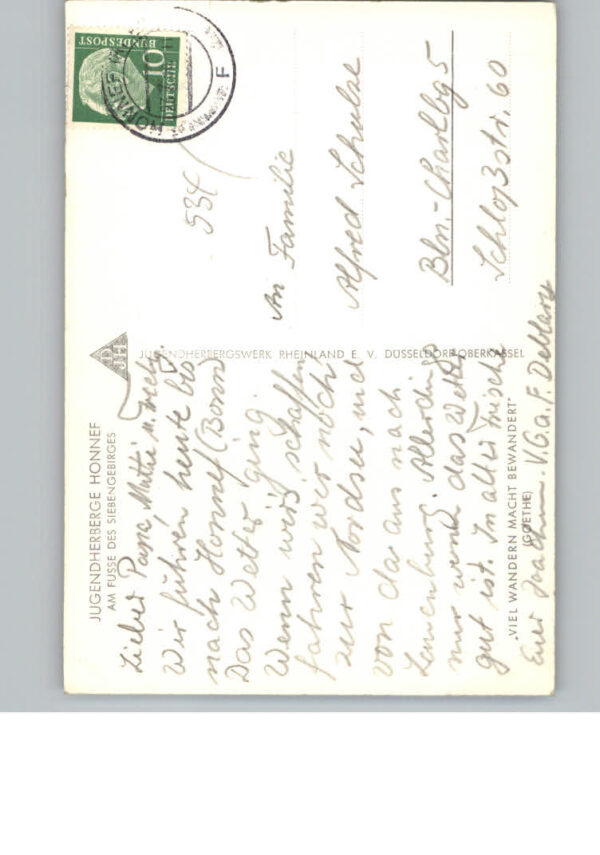 JUGENDHERBERGE HONNEF
AM FUSSE DES SIEBENGEBIRGES
Lieber Papa, Mutti u.
Wir fuhren heute bis
nach Honnef (Bonn)
Das Wetter ging.
Wenn wir's schaffen
fahren wir noch
zur Nordsee, und
von da aus nach
Lauenburg. Allerdings
nur wenn das Wetter
gut ist. In alter Frische
Euer Joachim. V.G.a.F.
"VIEL WANDERN MACHT BEWANDERT"
(GOETHE)
DJH
JUGENDHERBERGSWERK RHEINLAND E. V. DÜSSELDORF-OBERKASSEL
10
DEUTSCHE
BUNDESPOST
HONNEF
F
534
An Familie
Alfred Schulze
Bln.-Charlbg 5
Schloßstr. 60